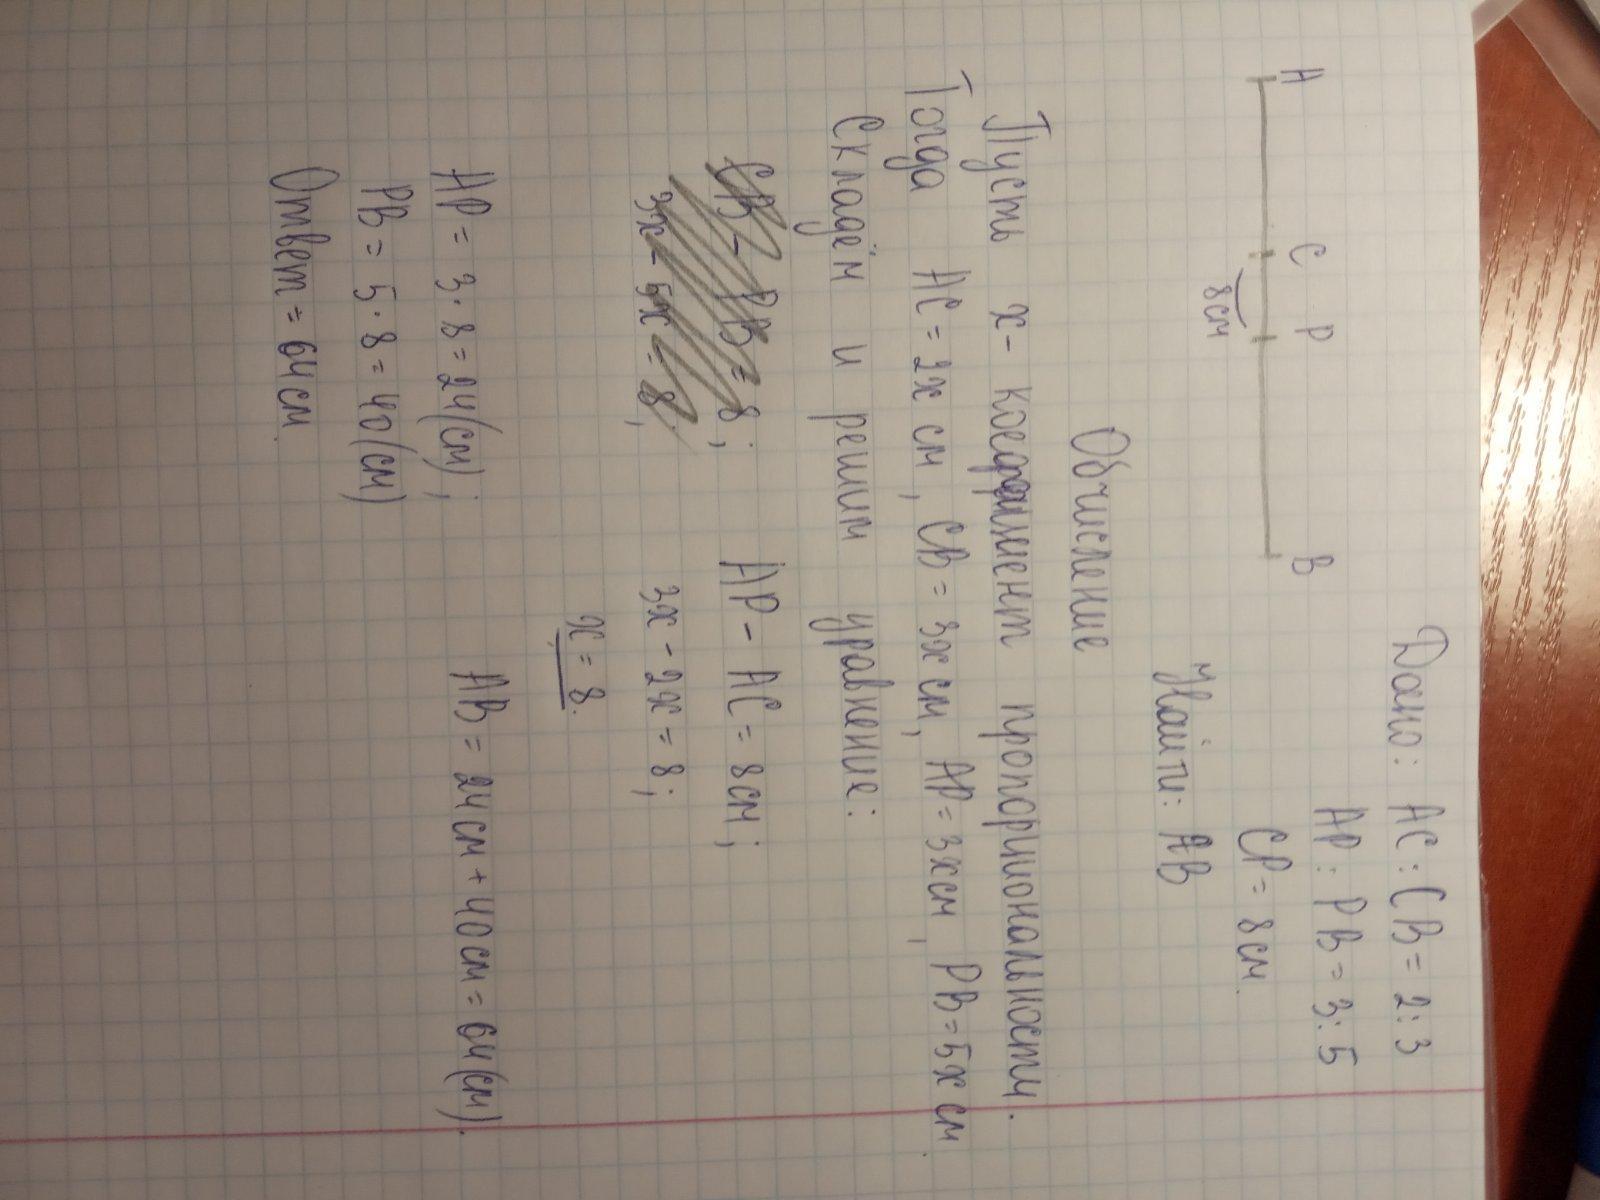 Дано: AC : CB = 2 : 3
AP : PB = 3 : 5
CP = 8 см.
Найти: AB
A C P B
8 см
Обчисление
Пусть x - коефициент пропорциональности.
Тогда AC = 2x см, CB = 3x см, AP = 3x см, PB = 5x см.
Складём и решим уравнение:
CB - PB = 8; AP - AC = 8 см;
3x - 5x = 8; 3x - 2x = 8;
x = 8.
AP = 3 · 8 = 24 (см); AB = 24 см + 40 см = 64 (см).
PB = 5 · 8 = 40 (см)
Ответ = 64 см.